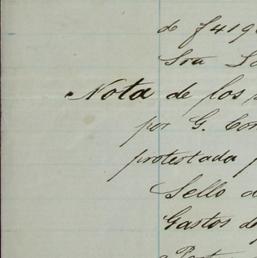 de f419
Sra
Nota de los
por G. Cor
protestada p
Sello d
Gastos de